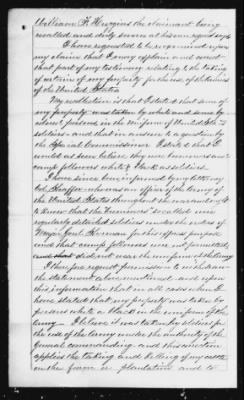 William R. Huggins the claimant being
recalled and duly sworn at his own request says
I have requested to be reexamined upon
my claim that I may explain and correct
that part of my testimony relating to the taking
of certain of my property for the use of
the United States
My recollection is that I stated that some of
my property was taken by white and some by
colored persons in the uniform of United States
soldiers and that in answer to a question by
the Special Commissioner I stated that I
could not swear whether they were bummers and
camp followers or soldiers.
I have since been informed by a letter
Col. who was an officer of the army of
the United States throughout the war and ought
to know that the "bummers" so called were
regularly detached soldiers under the orders of
Major Genl. Sherman for this special purpose
and that camp followers were not permitted
and did not wear the uniform of the Army
I therefore request permission to withdraw
the statement and upon
this information that in all cases where I
have stated that my property was taken by
persons white or black in the uniform of the
Army I believe it was taken by soldiers for
the use of the Army under the authority of the
General commanding. and this correction
applies the taking and killing of my cattle
on the farm or plantation and to